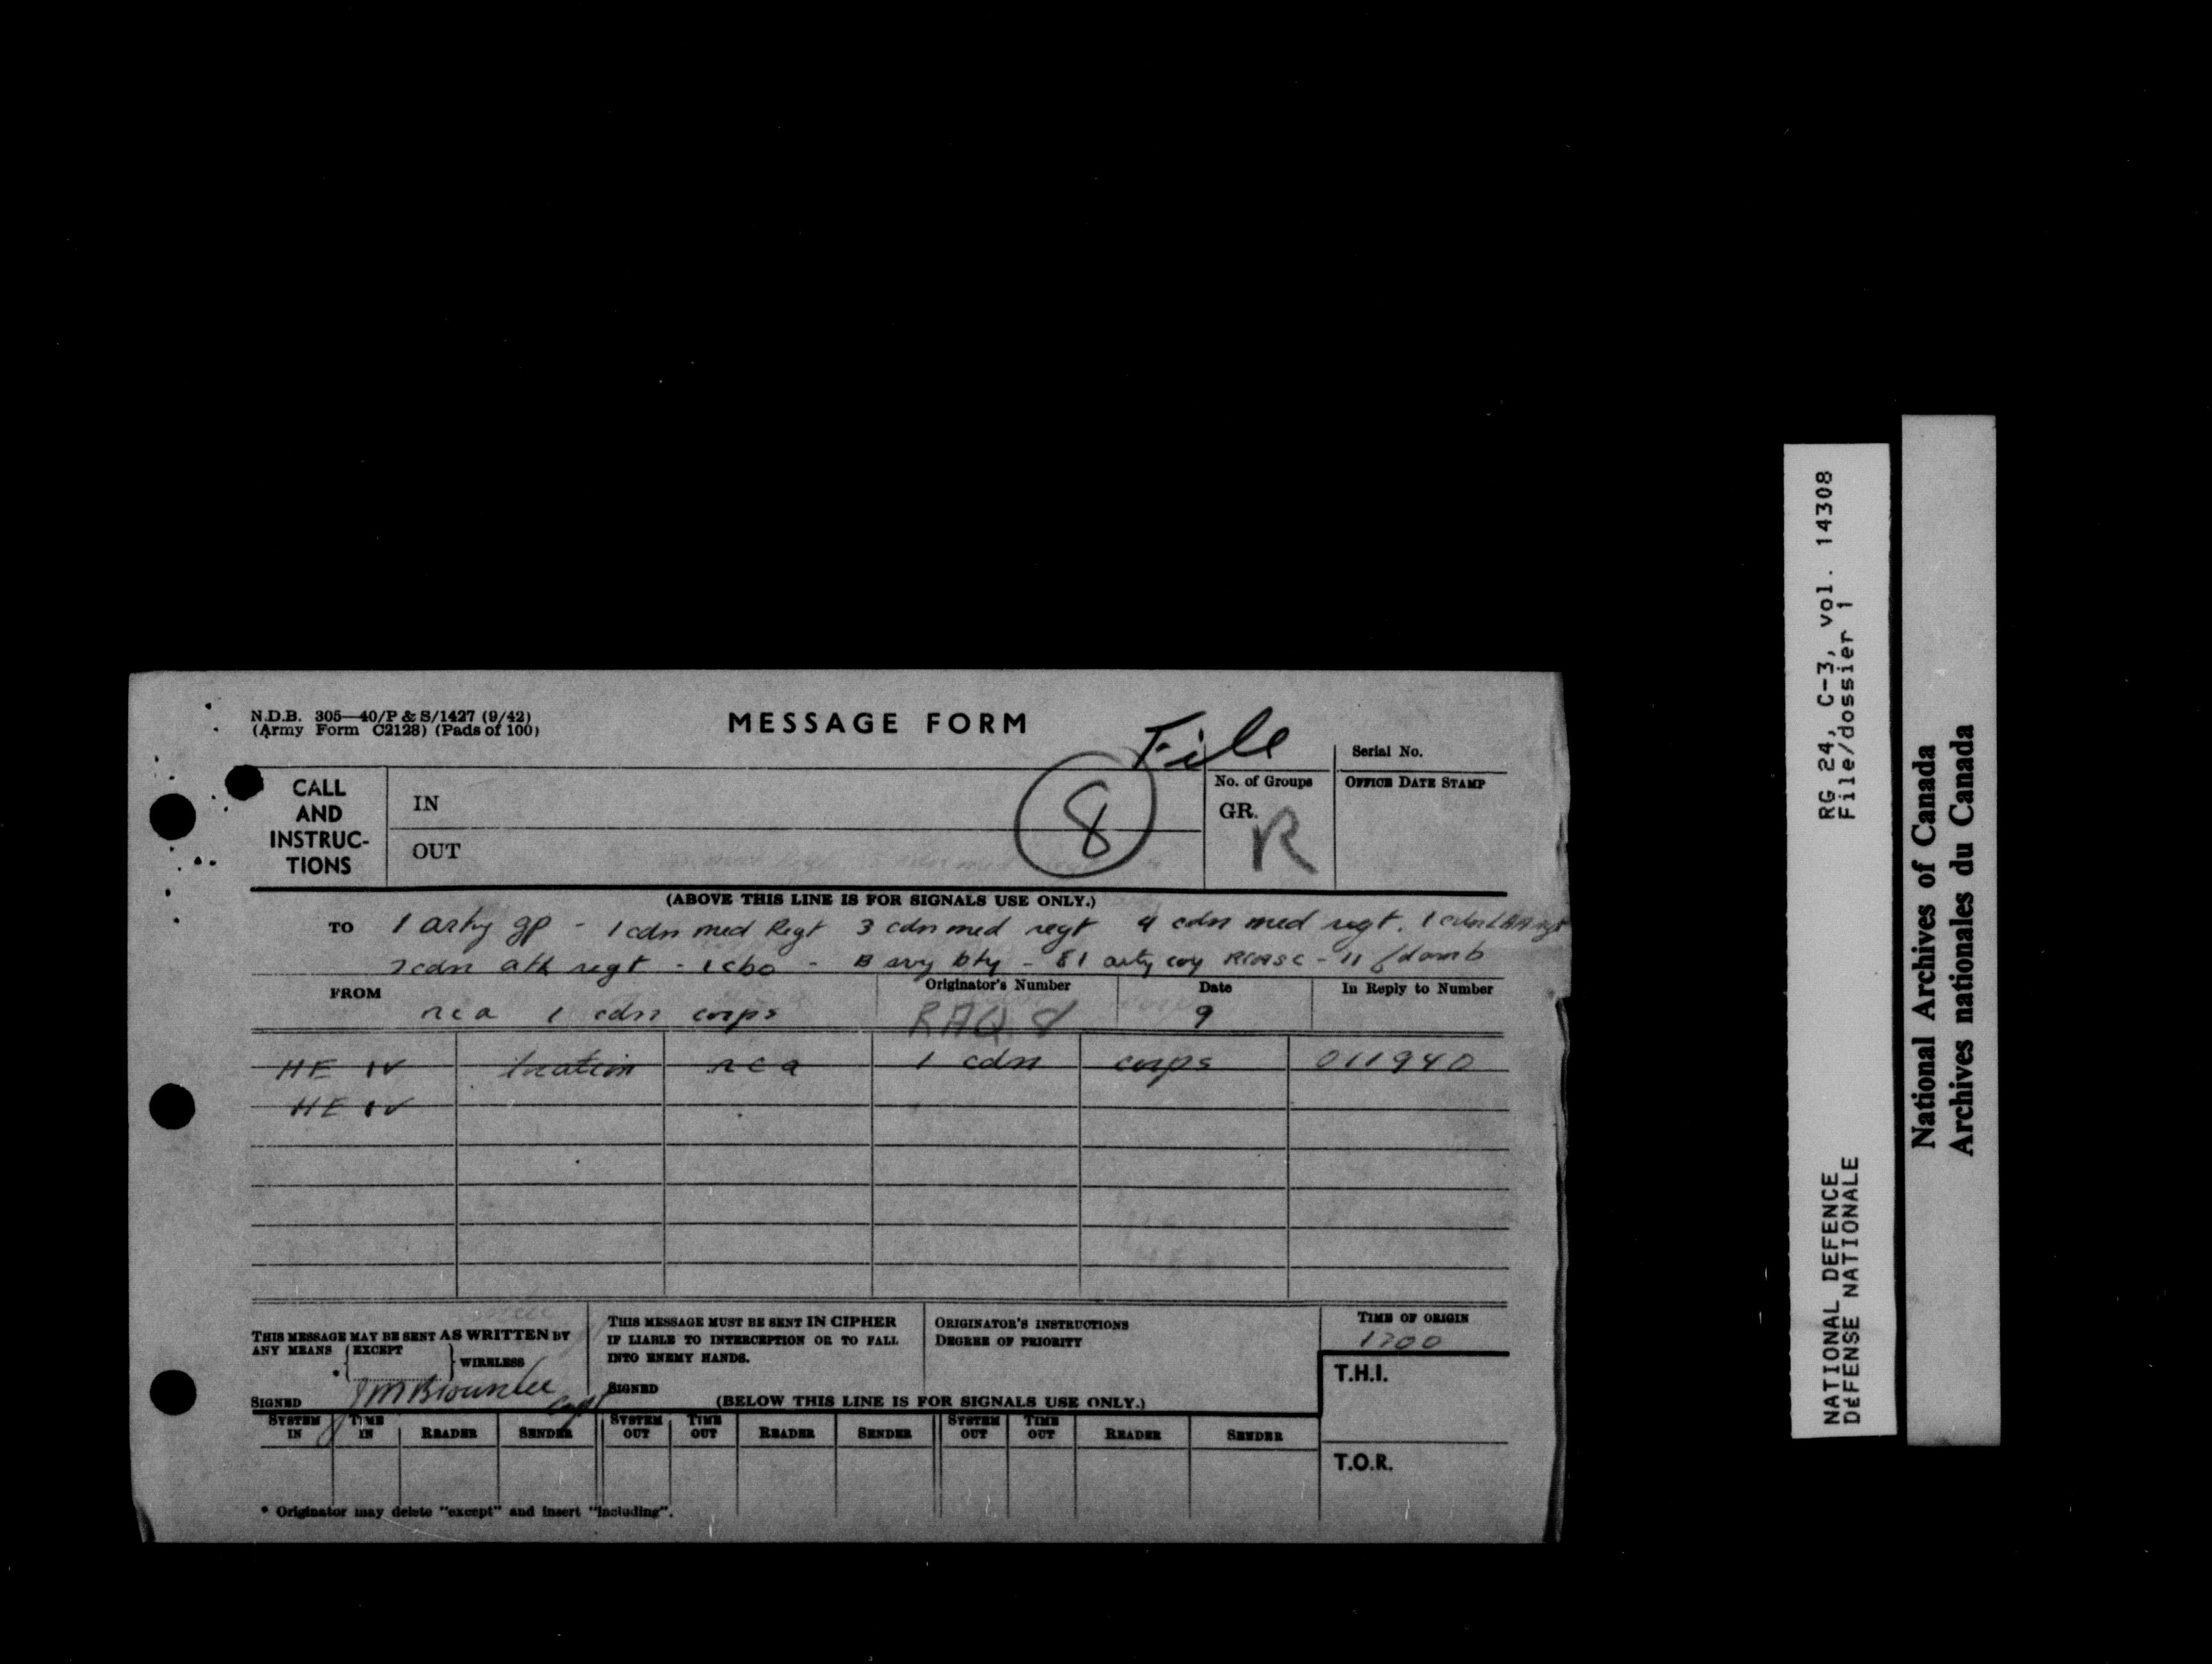 N.D.B. 305—40/P & S/1427 (9/42)
(Army Form C2128) (Pads of 100)
MESSAGE FORM
File
Serial No.
CALL AND INSTRUC-TIONS
IN
OUT
8
No. of Groups
GR.
R
OFFICE DATE STAMP
(ABOVE THIS LINE IS FOR SIGNALS USE ONLY.)
TO 1 arty gp - 1 cdn med Regt 3 cdn med regt 4 cdn med regt. 1 cdn LAA regt
7 cdn atk regt - 1 cbo - B svy bty - 81 arty coy RCASC -
FROM rca 1 cdn corps
Originator's Number RAQ 8
Date 9
In Reply to Number
HE IV location rca 1 cdn corps 011940
HE IV
THIS MESSAGE MAY BE SENT AS WRITTEN BY
ANY MEANS EXCEPT
* WIRELESS
SIGNED JM Brownlee Capt
THIS MESSAGE MUST BE SENT IN CIPHER
IF LIABLE TO INTERCEPTION OR TO FALL
INTO ENEMY HANDS.
SIGNED
ORIGINATOR'S INSTRUCTIONS
DEGREE OF PRIORITY
TIME OF ORIGIN
1200
T.H.I.
(BELOW THIS LINE IS FOR SIGNALS USE ONLY.)
SYSTEM IN TIME IN READER SENDER SYSTEM OUT TIME OUT READER SENDER SYSTEM OUT TIME OUT READER SENDER
T.O.R.
* Originator may delete "except" and insert "including".
RG 24, C-3, vol. 14308
File/dossier 1
NATIONAL DEFENCE
DéFENSE NATIONALE
National Archives of Canada
Archives nationales du Canada